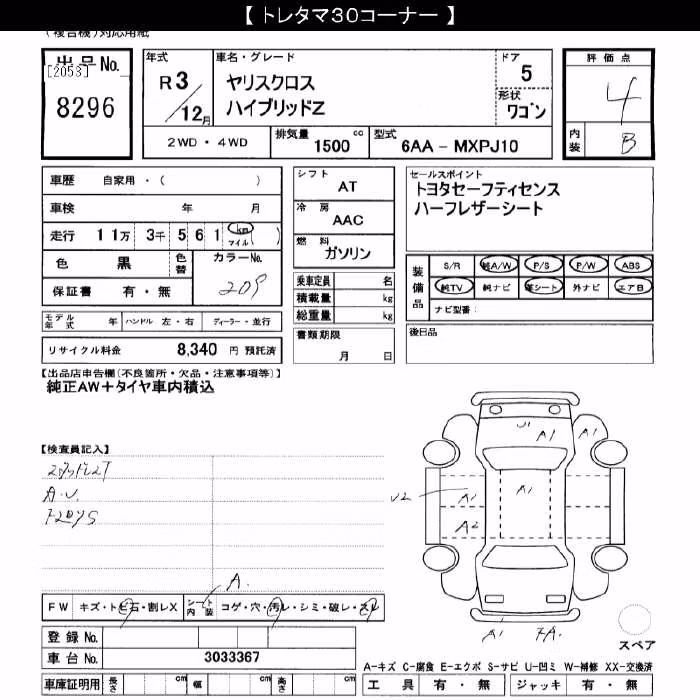 【 トレタマ30コーナー 】
(複合機)対応用紙
出品No.
[2053]
8296
年式
R 3 / 12月
車名・グレード
ヤリスクロス
ハイブリッドZ
ドア
5
形状
ワゴン
評価点
4
内装
B
2WD・4WD
排気量 1500 cc
型式 6AA - MXPJ10
車歴 自家用・( )
車検 年 月
走行 11万 3千 561 km マイル( )
色 黒 色替 カラーNo. 209
保証書 有・無
シフト AT
冷房 AAC
燃料 ガソリン
乗車定員 名
積載量 kg
総重量 kg
書類期限
月 日
セールスポイント
トヨタセーフティセンス
ハーフレザーシート
装備品
S/R 純A/W P/S P/W ABS
純TV 純ナビ 革シート 外ナビ エアB
ナビ型番:
モデル年式 年 ハンドル 左・右 ディーラー・並行
リサイクル料金 8,340 円 預託済
後日品
【出品店申告欄(不良箇所・欠品・注意事項等)】
純正AW+タイヤ車内積込
【検査員記入】
A.U.
U1 A1 A1
U2 A1 A1
A2
A.
FW キズ・トビ石・割レX シート内装 コゲ・穴・汚レ・シミ・破レ・スレ
A1 FA.
スペア
登録No.
車台No. 3033367
車庫証明用 長さ cm 幅 cm 高さ cm
A-キズ C-腐食 E-エクボ S-サビ U-凹ミ W-補修 XX-交換済
工具 有・無 ジャッキ 有・無